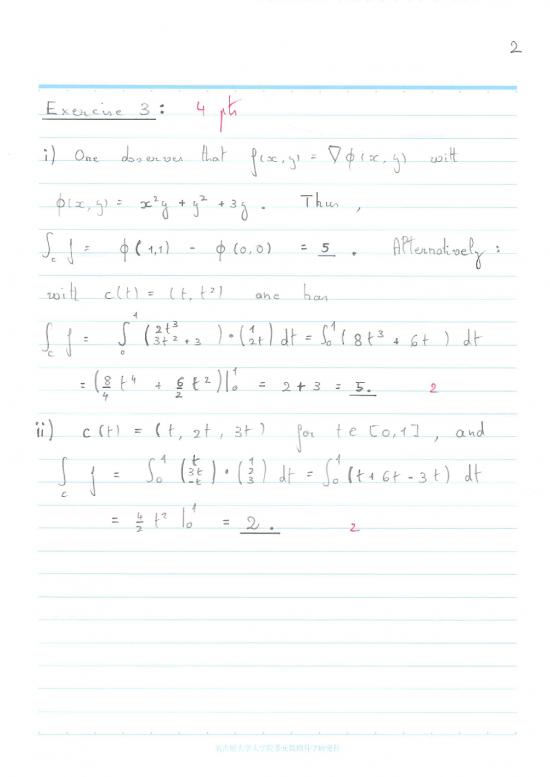 2
Exercise 3: 4 pts
i) One observes that f(x,y) = ∇ϕ(x,y) with
ϕ(x,y) = x²y + y² + 3y. Thus,
∫_c f = ϕ(1,1) - ϕ(0,0) = 5. Alternatively:
with c(t) = (t, t²) one has
∫_c f = ∫_0^1 (2t³ / 3t² + 3) • (1 / 2t) dt = ∫_0^1 (8t³ + 6t) dt
= (8/4 t⁴ + 6/2 t²)|_0^1 = 2 + 3 = 5. 2
ii) c(t) = (t, 2t, 3t) for t ∈ [0,1], and
∫_c f = ∫_0^1 (t / 3t / -t) • (1 / 2 / 3) dt = ∫_0^1 (t + 6t - 3t) dt
= 4/2 t² |_0^1 = 2. 2